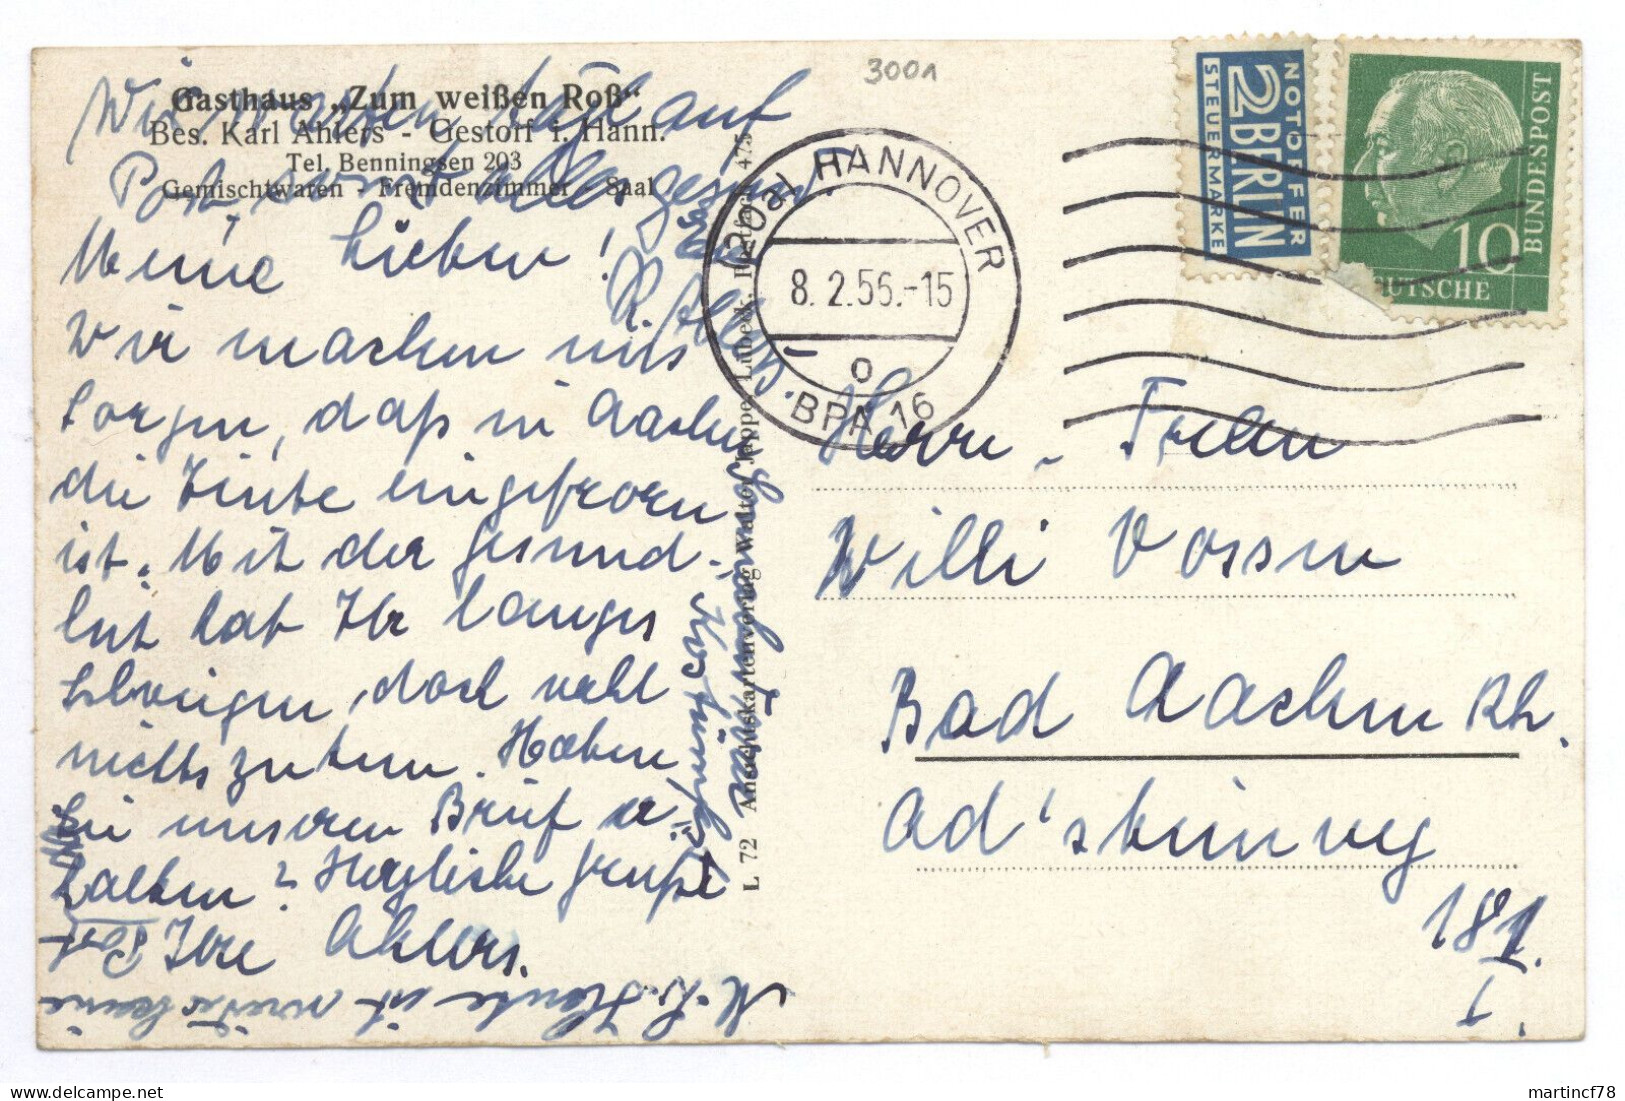 3001
Gasthaus „Zum weißen Roß“
Bes. Karl Ahlers - Gestorf i. Hann.
Tel. Benningsen 203
Gemischtwaren - Fremdenzimmer - Saal
Wir warten auf
Post, sonst alles gesund.
Meine Lieben!
Wir machen uns
Sorgen, daß in Aachen
die Tinte eingefroren
ist. Mit der Gesund-
heit hat Ihr langes
Schweigen doch wohl
nichts zu tun. Haben
Sie unseren Brief
erhalten? Herzliche Grüße
Ihre Ahlers.
Heute ist wieder keine
Post
L 72 Ansichtskartenverlag Walter Jappe, Lübeck, 475
HANNOVER
8.2.56.-15
o
BPA 16
NOTOPFER
2 BERLIN
STEUERMARKE
DEUTSCHE BUNDESPOST
10
Herrn
Willi Vossen
Bad Aachen Rh.
Ad'steinweg
181.
I
martincf78